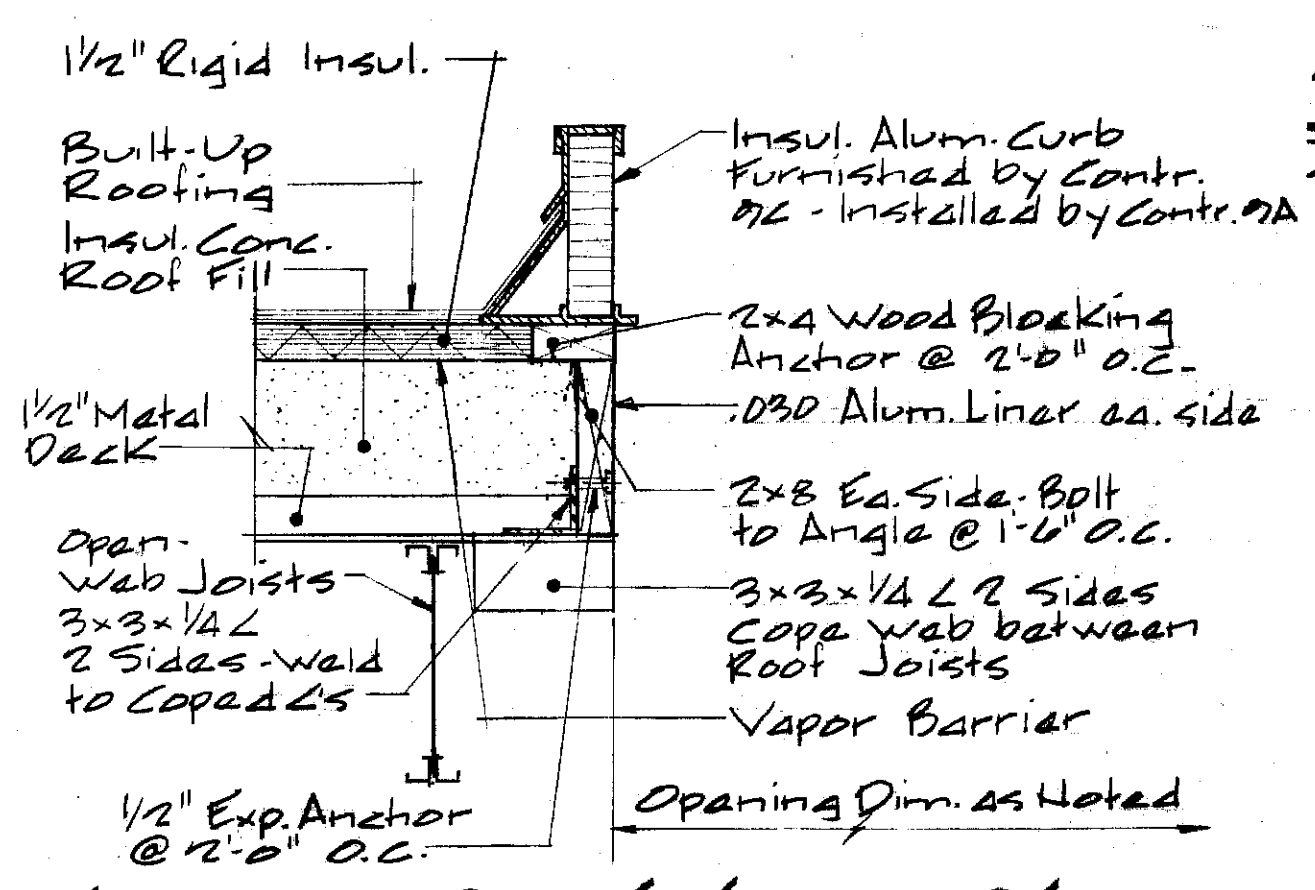 1 1/2" Rigid Insul.
Built-Up
Roofing
Insul. Conc.
Roof Fill
1 1/2" Metal
Deck
Open-
Web Joists
3x3x1/4 L
2 Sides-Weld
to Coped L's
1/2" Exp. Anchor
@ 2'-0" O.C.
Insul. Alum. Curb
Furnished by Contr.
9C - Installed by Contr. 9A
2x4 Wood Blocking
Anchor @ 2'-0" O.C.
.030 Alum. Liner ea. side
2x8 Ea. Side-Bolt
to Angle @ 1'-6" O.C.
3x3x1/4 L 2 Sides
Cope Web between
Roof Joists
Vapor Barrier
Opening Dim. as Noted